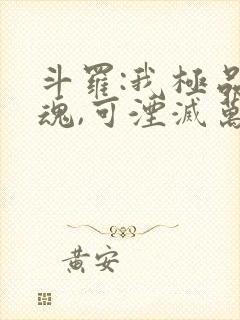 斗羅:我極品
魂,可湮滅萬
黃安